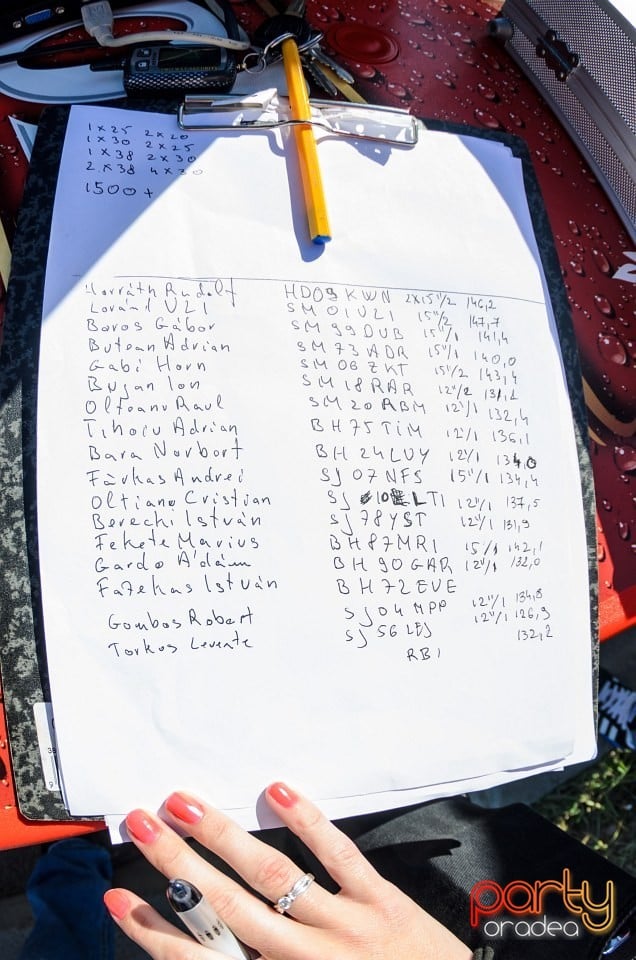 1x25 2x20
1x30 2x25
1x38 2x30
2x38 4x30
1500+
Horváth Rudolf HD09KWN 2x15"/2 146,2
Loránd UZI SM 01UZI 15"/2 147,7
Boros Gábor SM 99DUB 15"/1 141,4
Butean Adrian SM 73 ADR 15"/1 140,0
Gabi Horn SM 06 ZKT 15"/2 143,4
Bujan Ion SM 18 RAR 12"/2
Olteanu Raul SM 20 RBM 12"/1 132,4
Tihoiu Adrian BH 75 TIM 12"/1 136,1
Bara Norbort BH 24 LUY 12"/1 134,0
Fárkas Andrei SJ 07 NFS 15"/1 134,4
Oltianu Cristian SJ LTI 12"/1 137,5
Berecki István SJ 78 YST 12"/1 131,9
Fekete Marius BH 87 MRI 15"/1 142,1
Gardo Ádám BH 90 GAR 12"/1 132,0
Fazekas István BH 72 EVE
Gombos Robert SJ 04 MPP 12"/1 134,8
Torkos Levente SJ 56 LEJ 12"/1 126,9
RBI 132,2
party
oradea